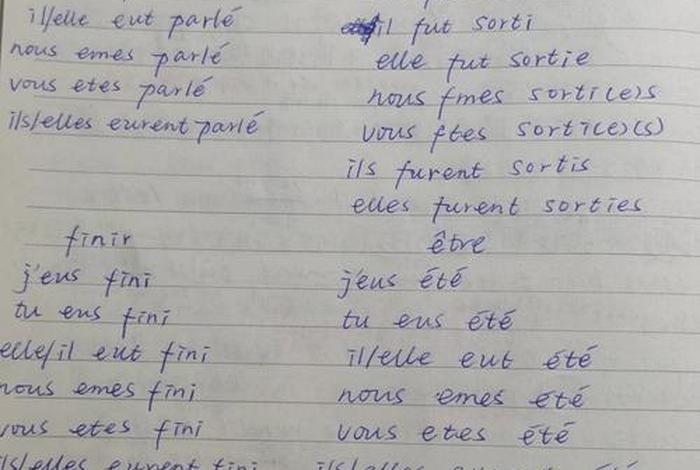 il/elle eut parlé
nous emes parlé
vous etes parlé
ils/elles eurent parlé
il fut sorti
elle fut sortie
nous fmes sorti(e)s
vous ftes sorti(e)(s)
ils furent sortis
elles furent sorties
finir
j'eus fini
tu eus fini
elle/il eut fini
nous emes fini
vous etes fini
ils/elles eurent fini
être
j'eus été
tu eus été
il/elle eut été
nous emes été
vous etes été
ils/elles eurent été